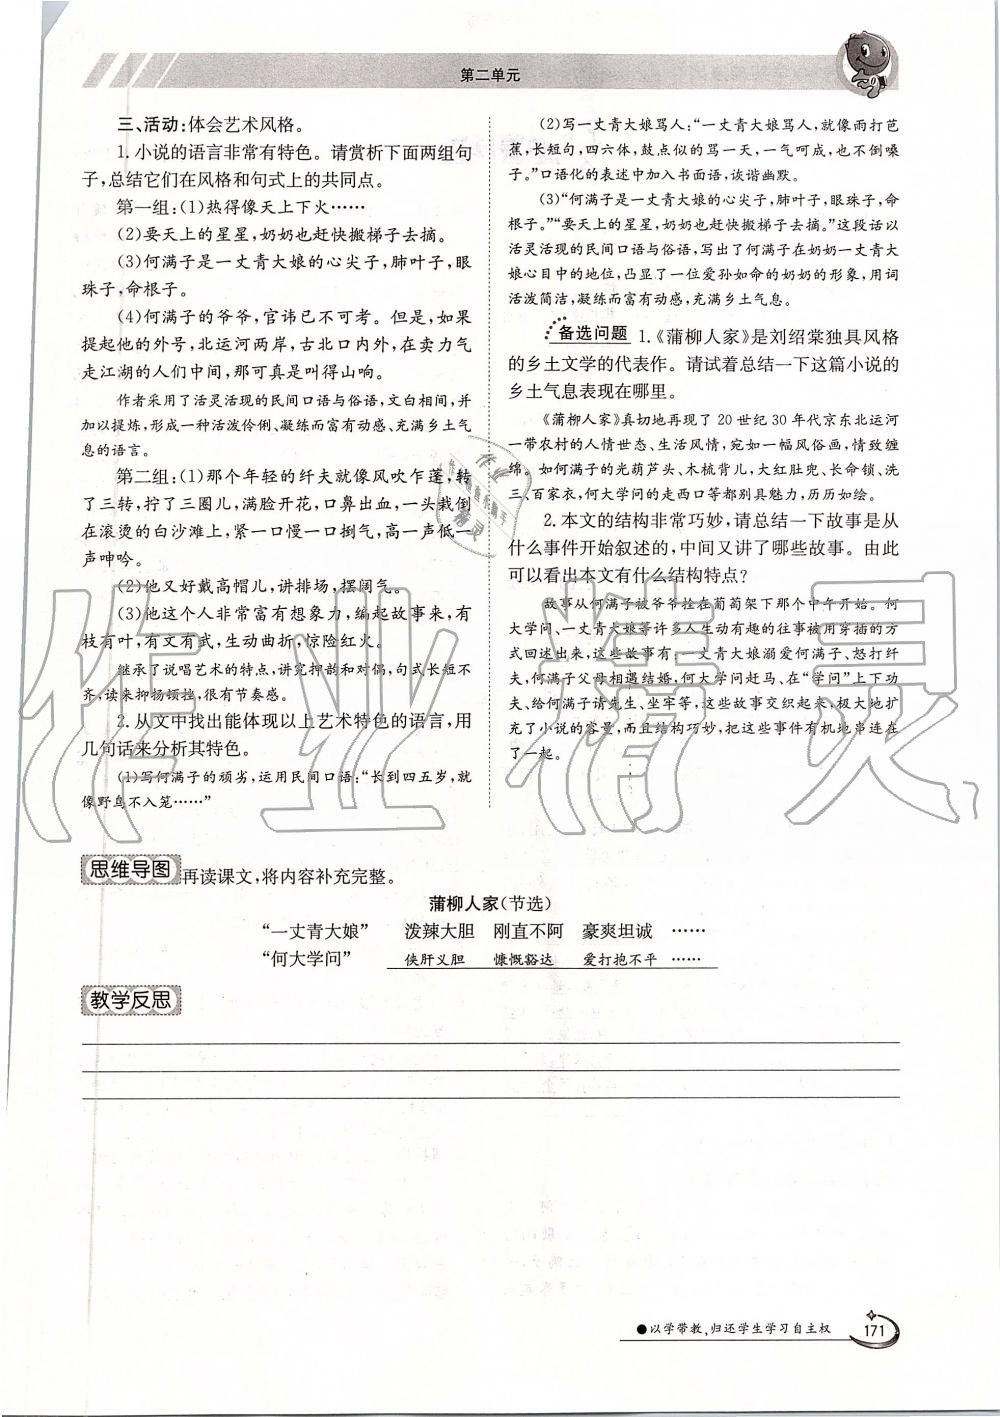 第二单元
三、活动:体会艺术风格。
1.小说的语言非常有特色。请赏析下面两组句
子,总结它们在风格和句式上的共同点。
第一组:(1)热得像天上下火……
(2)要天上的星星,奶奶也赶快搬梯子去摘。
(3)何满子是一丈青大娘的心尖子,肺叶子,眼
珠子,命根子。
(4)何满子的爷爷,官讳已不可考。但是,如果
提起他的外号,北运河两岸,古北口内外,在卖力气
走江湖的人们中间,那可真是叫得山响。
作者采用了活灵活现的民间口语与俗语,文白相间,并
加以提炼,形成一种活泼伶俐、凝练而富有动感、充满乡土气
息的语言。
第二组:(1)那个年轻的纤夫就像风吹乍蓬,转
了三转,拧了三圈儿,满脸开花,口鼻出血,一头栽倒
在滚烫的白沙滩上,紧一口慢一口捯气,高一声低一
声呻吟。
(2)他又好戴高帽儿,讲排场,摆阔气。
(3)他这个人非常富有想象力,编起故事来,有
枝有叶,有文有武,生动曲折,惊险红火。
继承了说唱艺术的特点,讲究押韵和对偶,句式长短不
齐,读来抑扬顿挫,很有节奏感。
2.从文中找出能体现以上艺术特色的语言,用
几句话来分析其特色。
(1)写何满子的顽劣,运用民间口语:“长到四五岁,就
像野鸟不入笼……”
(2)写一丈青大娘骂人:“一丈青大娘骂人,就像雨打芭
蕉,长短句,四六体,鼓点似的骂一天,一气呵成,也不倒嗓
子。”口语化的表述中加入书面语,诙谐幽默。
(3)“何满子是一丈青大娘的心尖子,肺叶子,眼珠子,命
根子。”“要天上的星星,奶奶也赶快搬梯子去摘。”这段话以
活灵活现的民间口语与俗语,写出了何满子在奶奶一丈青大
娘心目中的地位,凸显了一位爱孙如命的奶奶的形象,用词
活泼简洁,凝练而富有动感,充满乡土气息。
备选问题 1.《蒲柳人家》是刘绍棠独具风格
的乡土文学的代表作。请试着总结一下这篇小说的
乡土气息表现在哪里。
《蒲柳人家》真切地再现了20世纪30年代京东北运河
一带农村的人情世态、生活风情,宛如一幅风俗画,情致缠
绵。如何满子的光葫芦头、木梳背儿,大红肚兜、长命锁、洗
三、百家衣,何大学问的走西口等都别具魅力,历历如绘。
2.本文的结构非常巧妙,请总结一下故事是从
什么事件开始叙述的,中间又讲了哪些故事。由此
可以看出本文有什么结构特点?
故事从何满子被爷爷拴在葡萄架下那个中午开始。何
大学问、一丈青大娘等许多人生动有趣的往事被用穿插的方
式回述出来,这些故事有:一丈青大娘溺爱何满子、怒打纤
夫,何满子父母相遇结婚,何大学问赶马、在“学问”上下功
夫、给何满子请先生、坐牢等,这些故事交织起来,极大地扩
充了小说的容量,而且结构巧妙,把这些事件有机地串连在
了一起。
作业精灵
思维导图 再读课文,将内容补充完整。
蒲柳人家(节选)
“一丈青大娘” 泼辣大胆 刚直不阿 豪爽坦诚 ……
“何大学问” 侠肝义胆 慷慨豁达 爱打抱不平 ……
教学反思
●以学带教,归还学生学习自主权 171